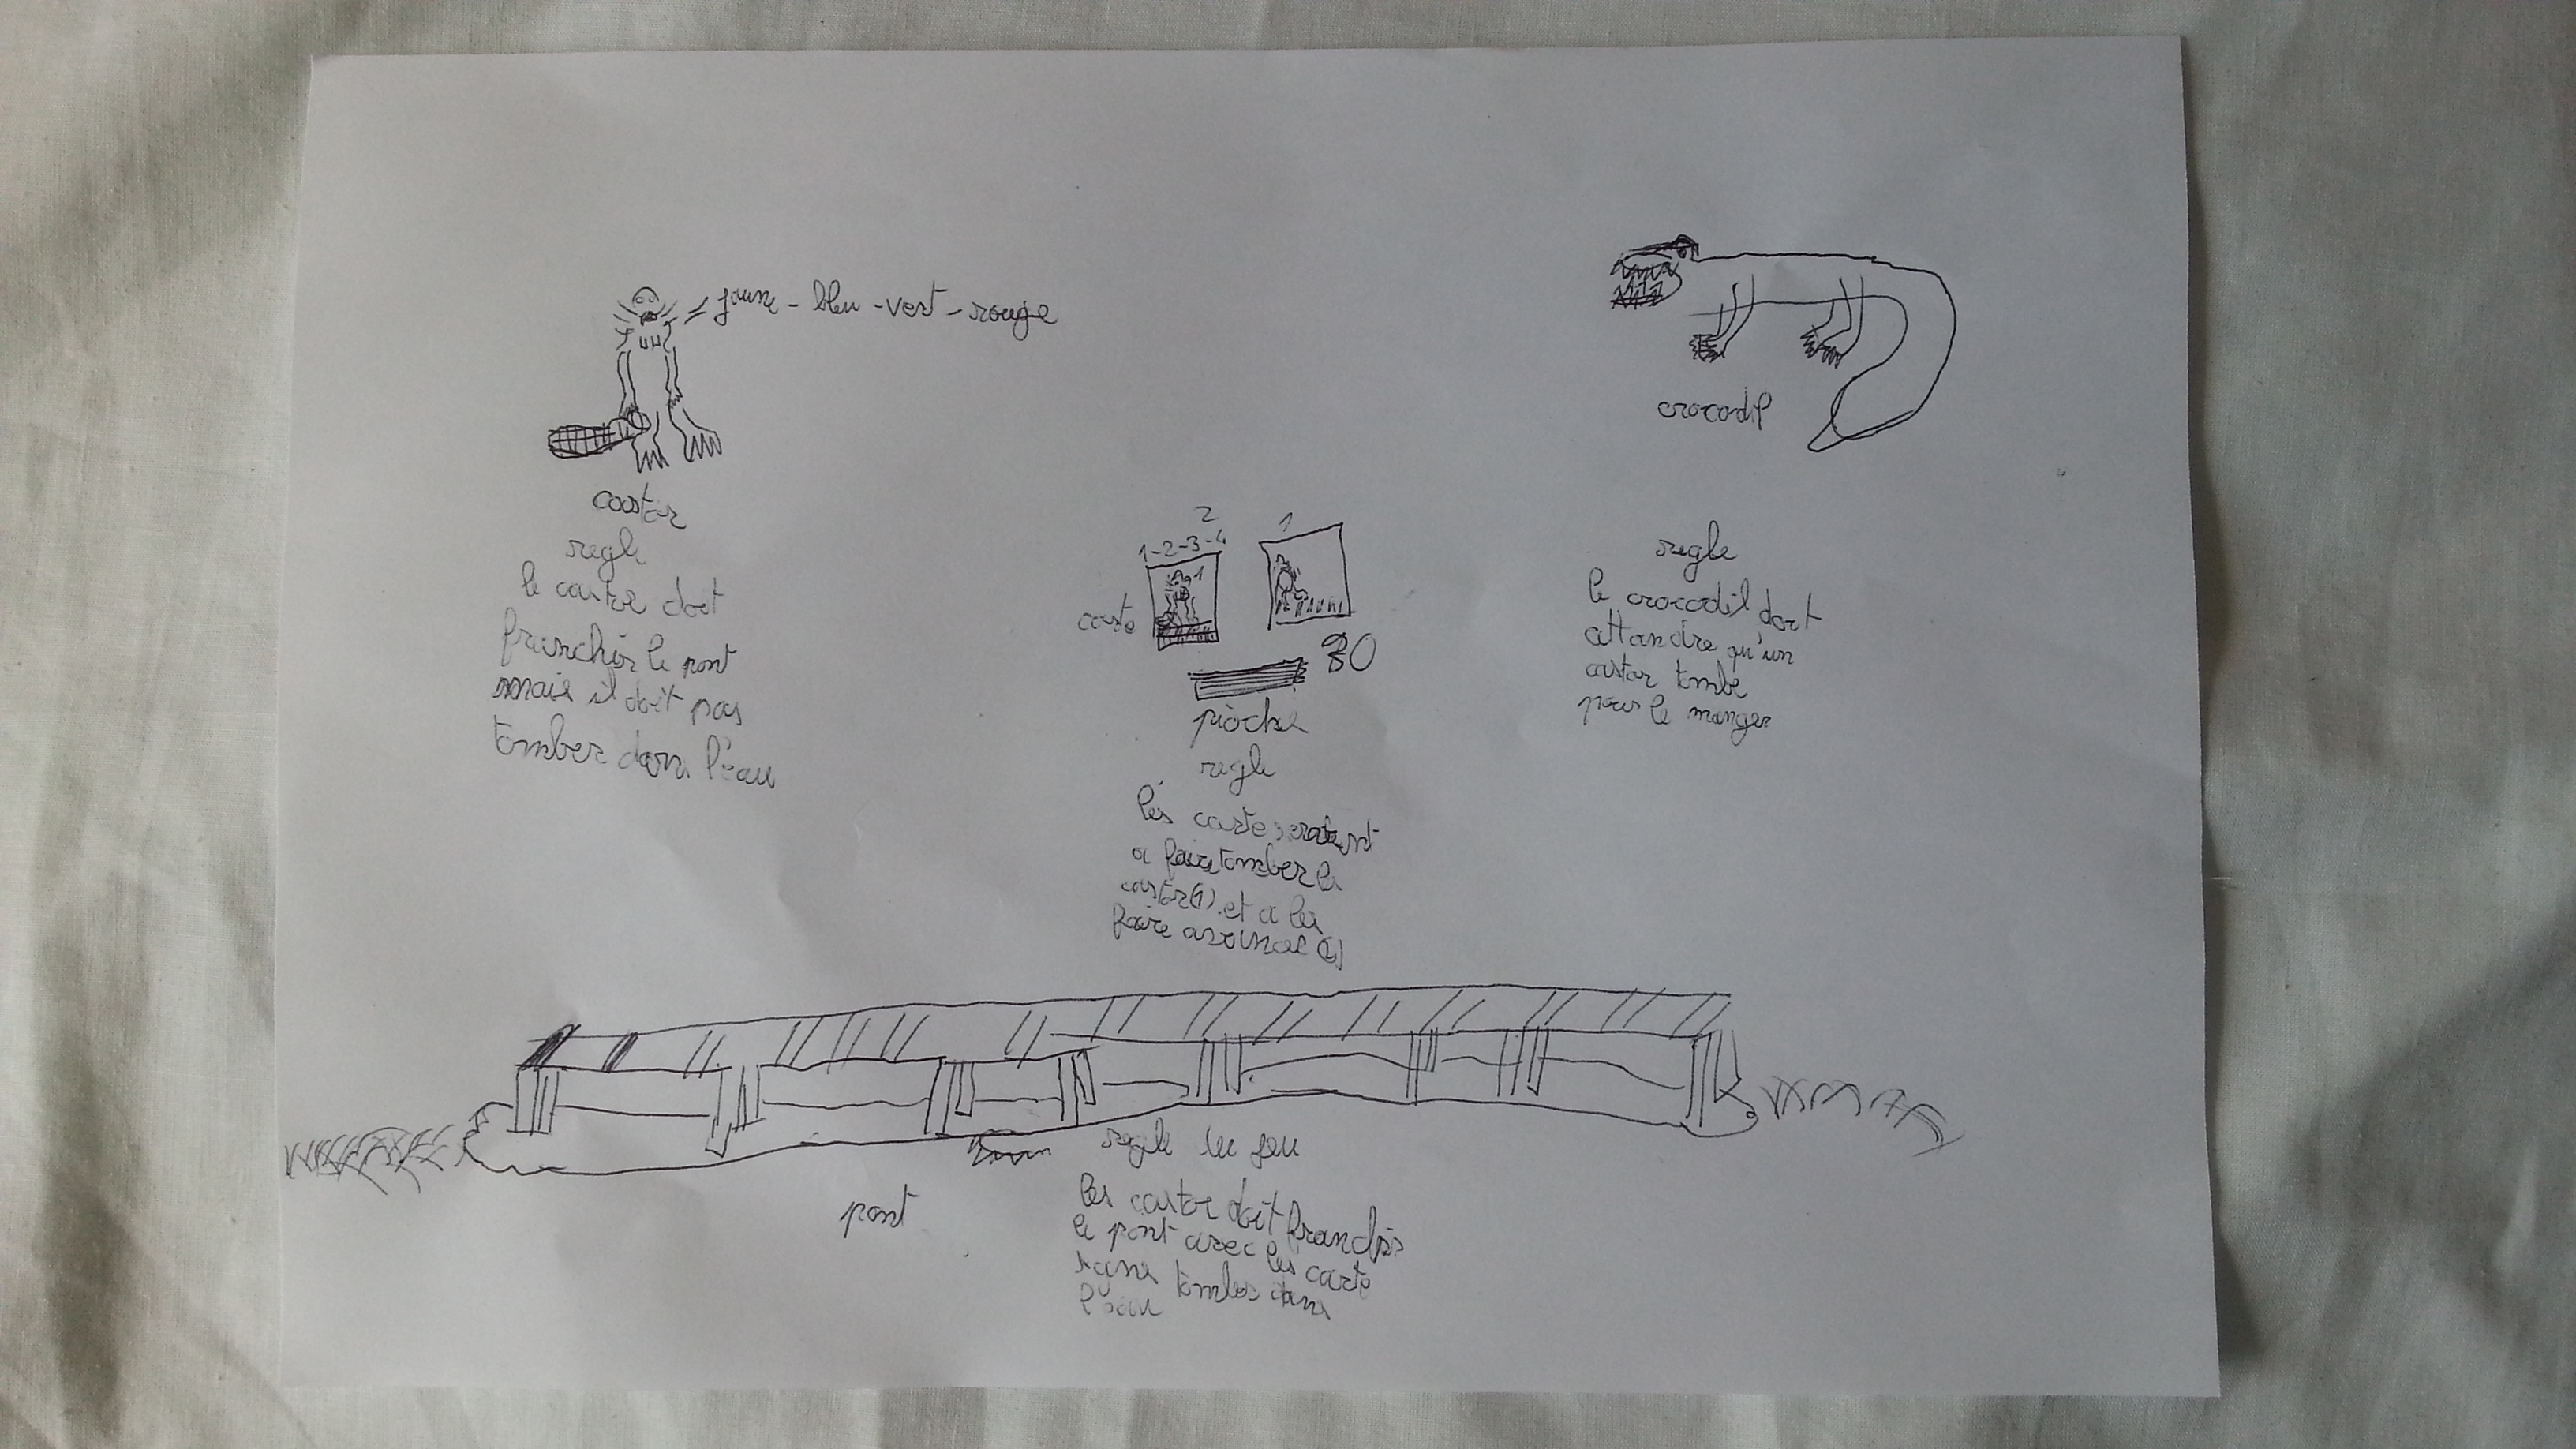 jaune - bleu - vert - rouge
castor
regle
le castre doit
franchir le pont
mais il doit pas
tomber dans l'eau
2
1-2-3-4
1
1
carte
30
pioche
regle
lés carte servent
a faire tomber le
castor(1) et a les
faire avancer (2)
crocodil
regle
le crocodil doit
attandre qu'un
castor tombe
pour le manger
pont
regle du jeu
les castor doit franchir
le pont avec les carte
sans tomber dans
l'eau